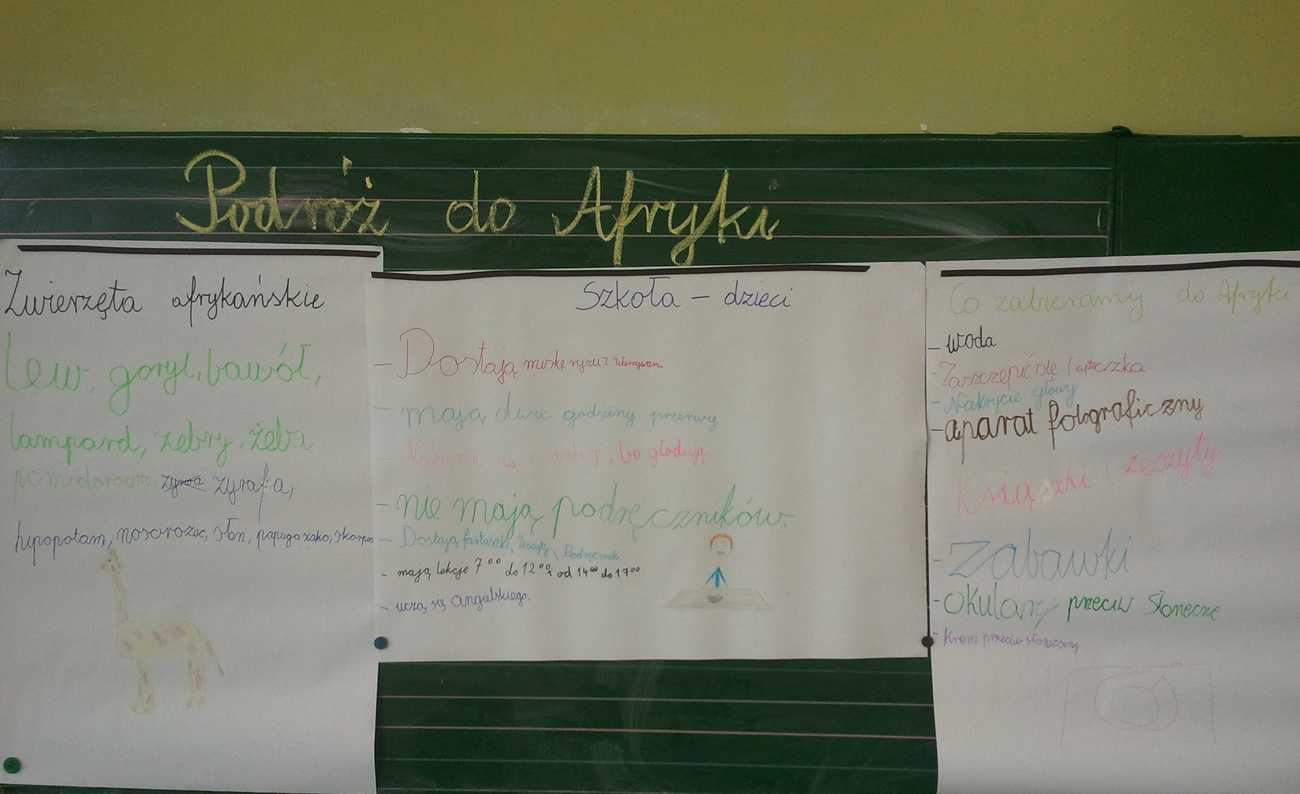 Podróż do Afryki
Zwierzęta afrykańskie
Lew, goryl, bawół,
lampard, zebry, żeba
zyrafa,
hipopotam, nosorożec, słoń, papuga żako, skorpo
Szkoła - dzieci
- Dostają miskę ryżu z
- mają dwie godziny przerwy
bo głodują
- nie mają podręczników.
- Dostają fartuszki,
- mają lekcje 7⁰⁰ do 12⁰⁰, od 14⁰⁰ do 17⁰⁰
- uczą się angielskiego.
Co zabieramy do Afryki
- woda
- Zaszczepić się / apteczka
- Nakrycie głowy
- aparat fotograficzny
Książki i zeszyty
- Zabawki
- okulary przeciw słoneczne
- Krem przeciw słoneczny